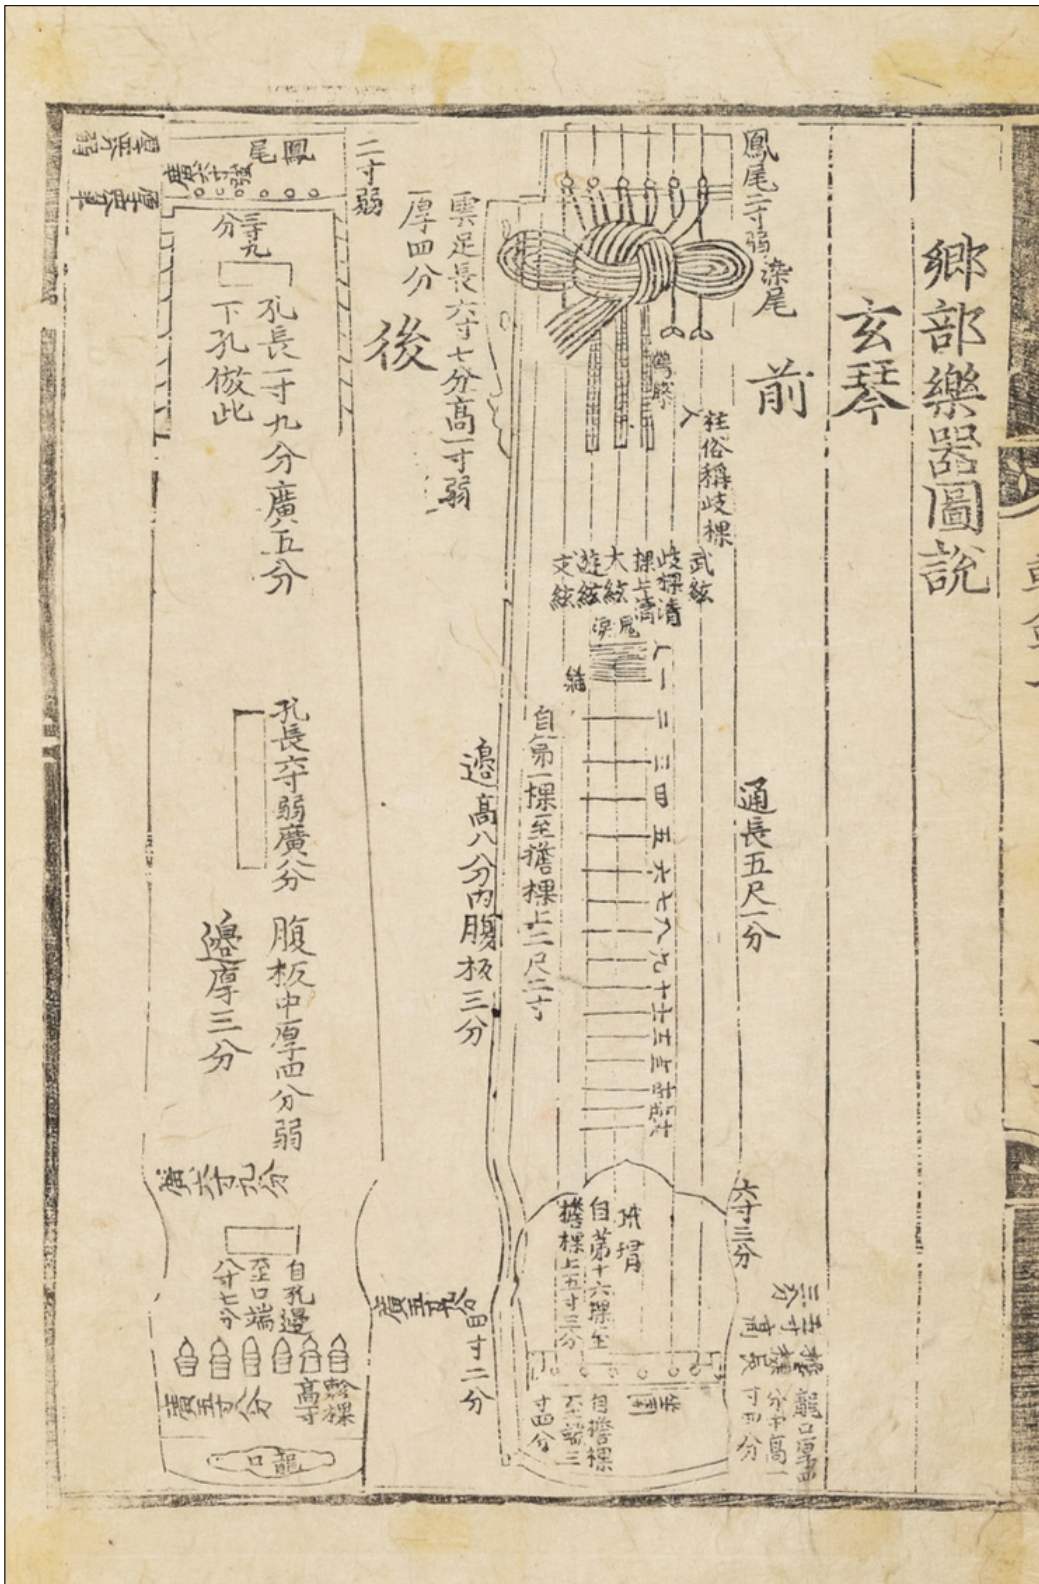 鄉部樂器圖說
玄琴
前
鳳尾二寸弱
染尾
柱俗稱歧棵
武絃
歧棵清
棵上清
大絃
遊絃
文絃
一
二
三
四
五
六
七
八
九
十
通長五尺一分
自第一棵至擔棵上二尺二寸
六寸三分
玳瑁
自第十六棵至
擔棵上五寸三分
坐團
自擔棵
至端三
寸四分
龍口厚四
分中高一
寸四分
後
雲足長六寸七分高一寸弱
厚四分
邊高八分內腹板三分
四寸二分
廣五寸九分
二寸弱
鳳尾
三寸九
分
孔長一寸九分廣五分
下孔倣此
孔長六寸弱廣八分
腹板中厚四分弱
邊厚三分
廣六寸九分
自孔邊
至口端
八寸七分
軫棵
高寸
廣五寸八分
龍口